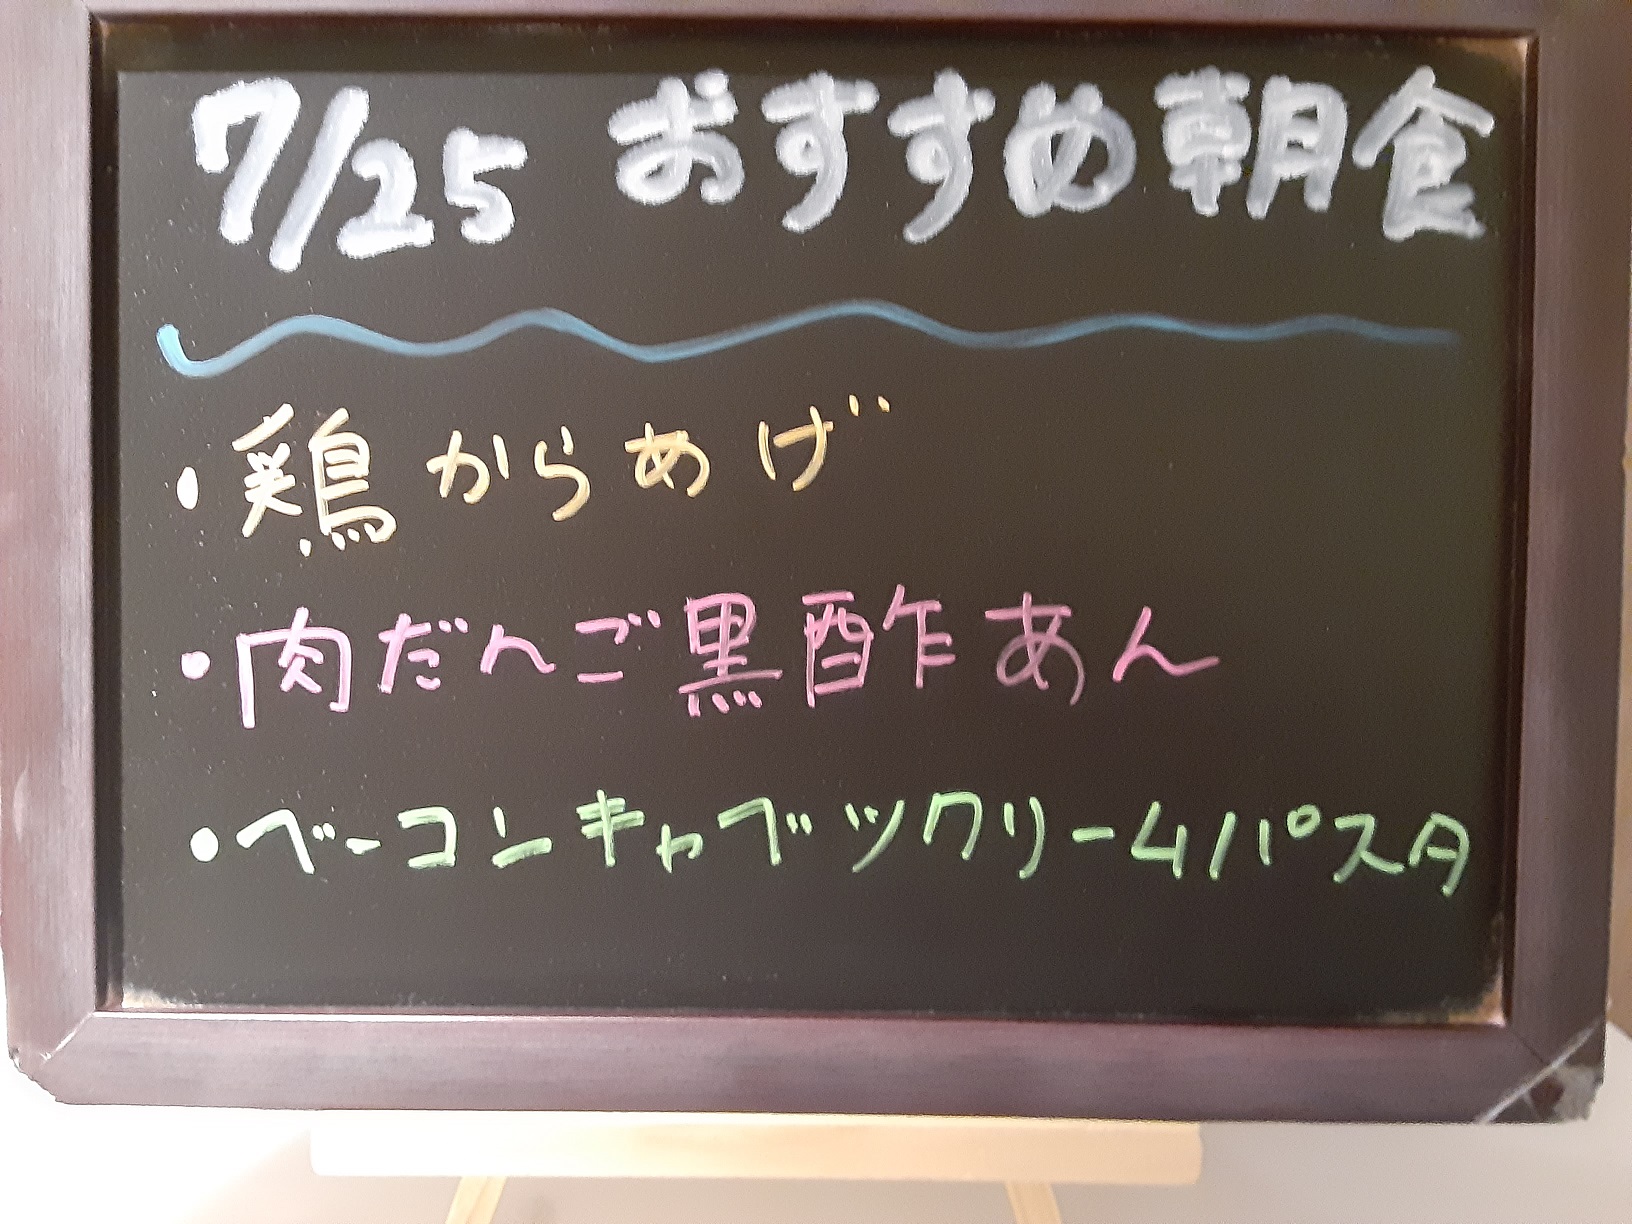 7/25 おすすめ朝食
・鶏からあげ
・肉だんご黒酢あん
・ベーコンキャベツクリームパスタ